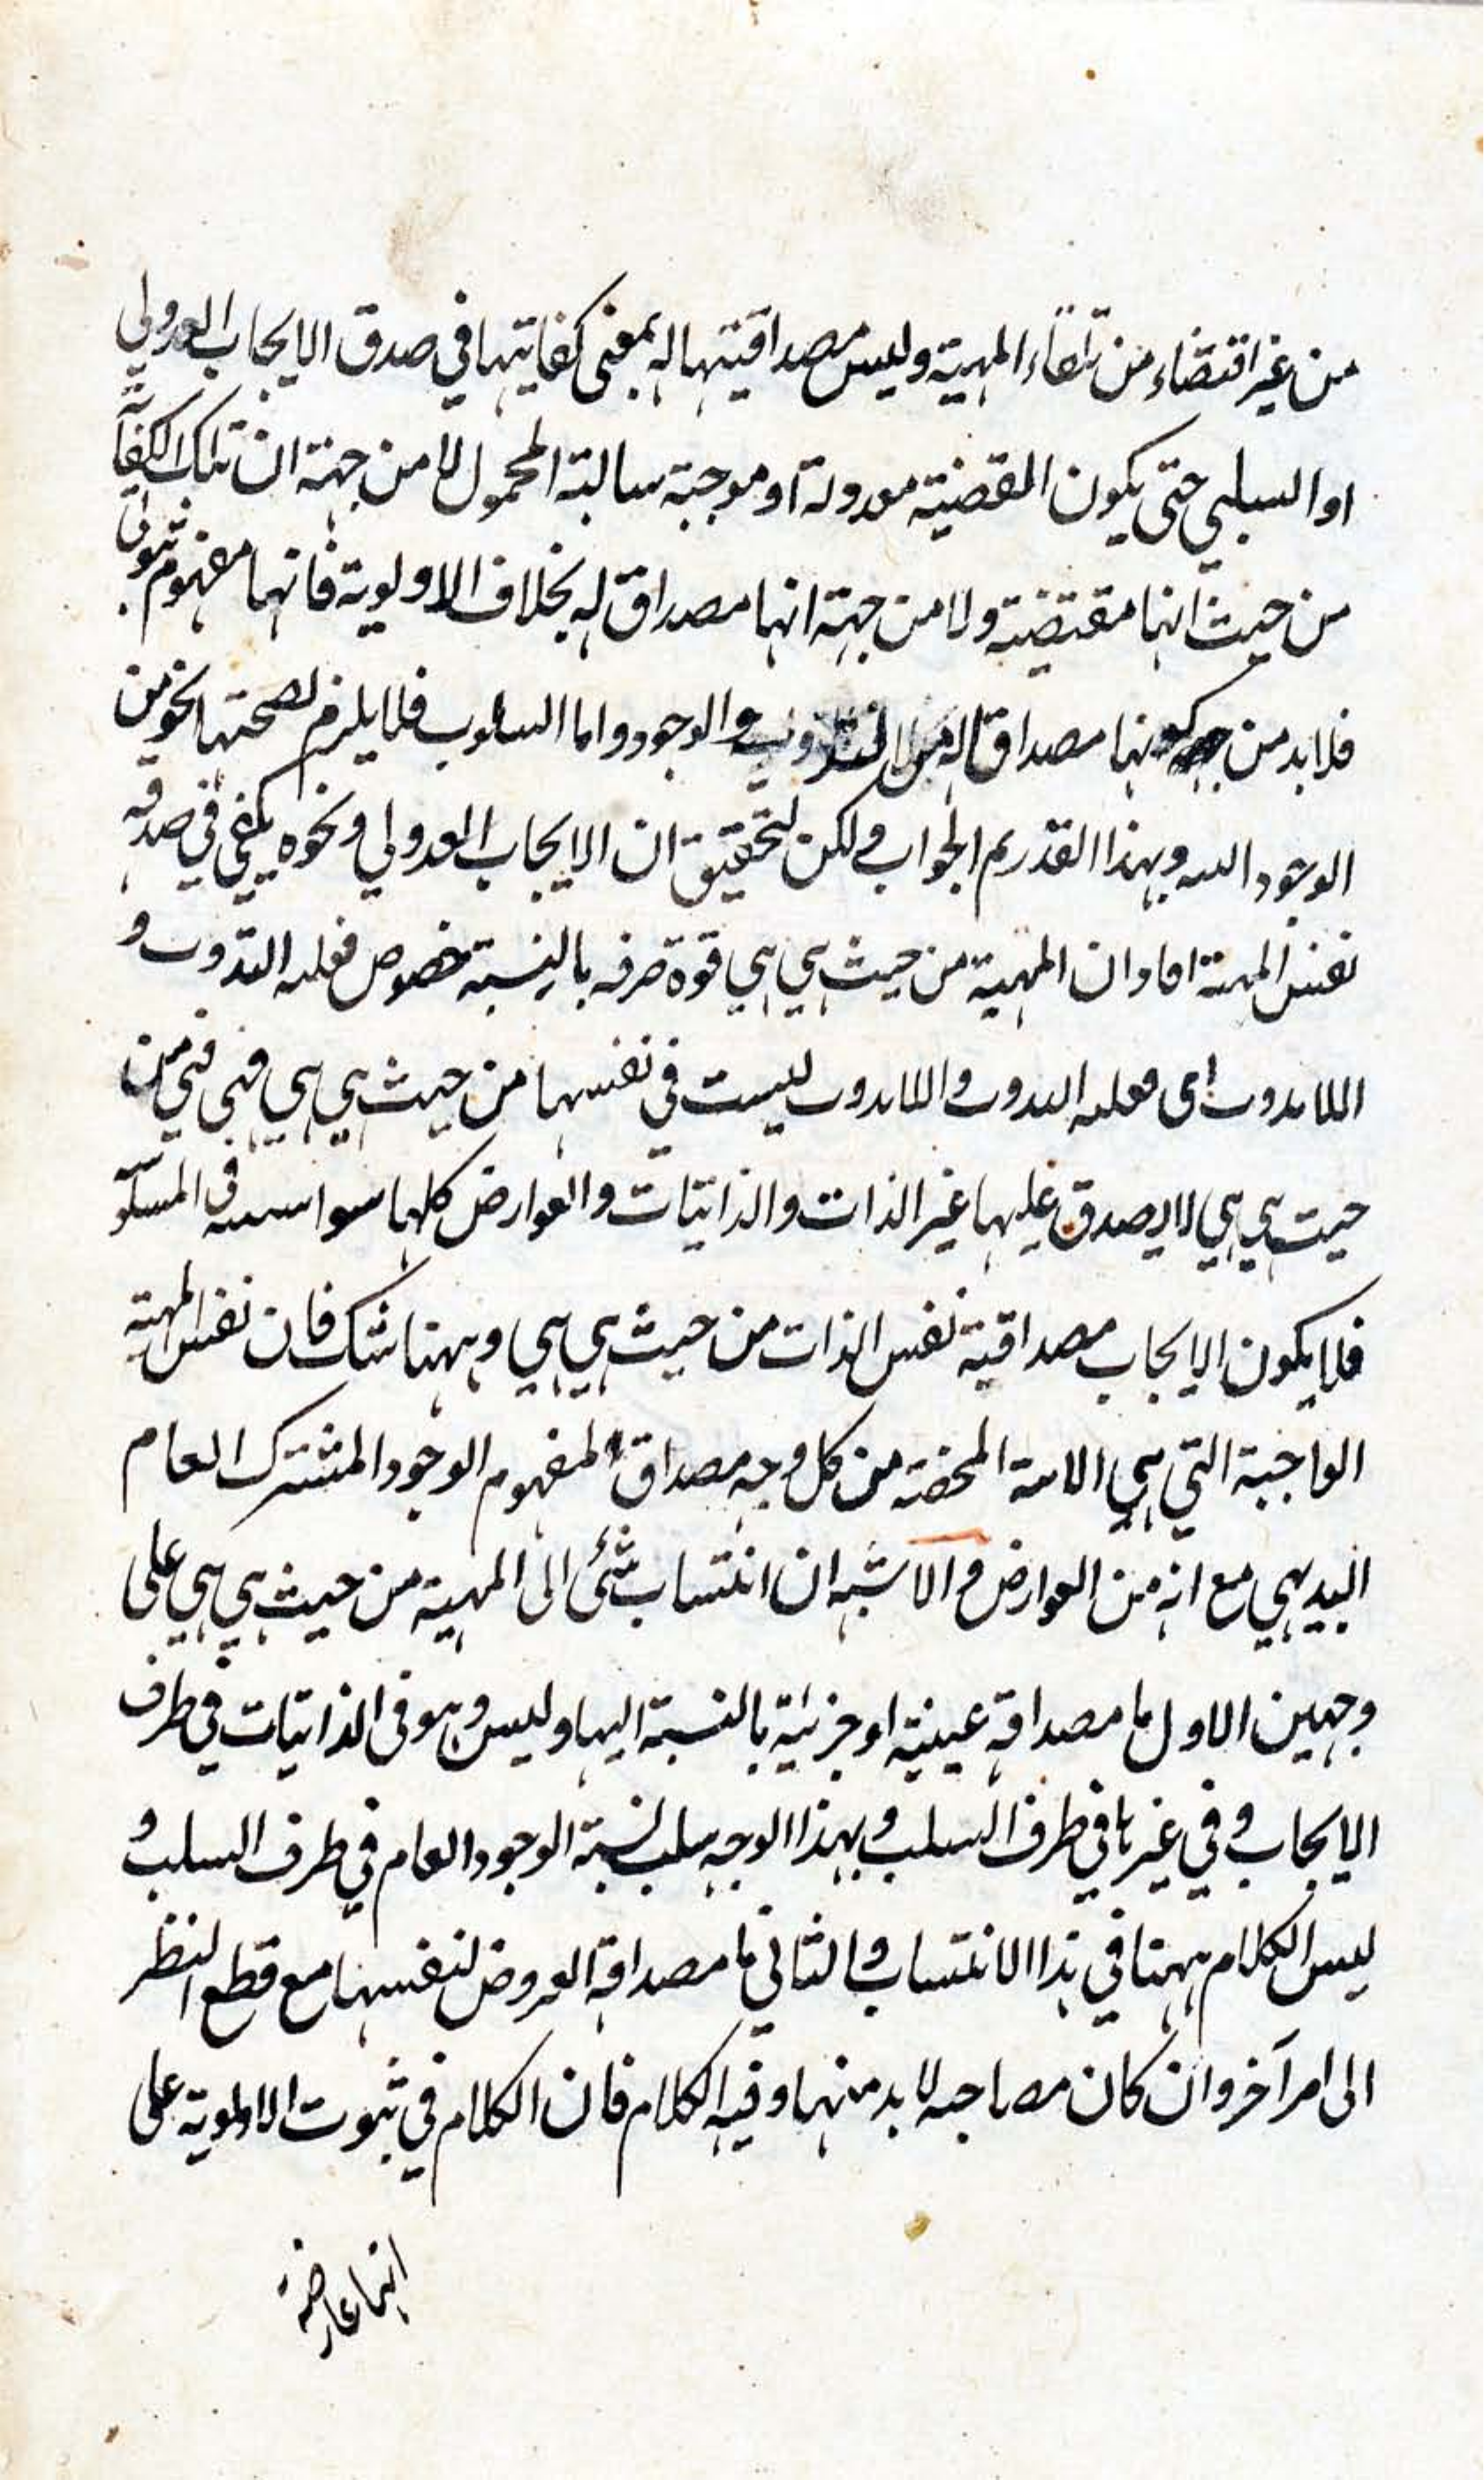 من غير اقتضاء من تلقاء المهية وليس مصداقيتها له بمعنى كفايتها في صدق الايجاب العدولي
او السلبي حتى يكون القضية معدولة او موجبة سالبة المحمول لا من جهة ان تلك الكفاية
من حيث انها مقتضية ولا من جهة انها مصداق له بخلاف الاولوية فانها مفهوم ثبوتي
فلا بد من كونها مصداقا له والوجود واما السلوب فلا يلزم لصحتها نحو من
الوجود وبهذا القدر يتم الجواب ولكن لتحقيق ان الايجاب العدولي ونحوه يكفي في صدقه
نفس المهية افاد ان المهية من حيث هي هي قوة صرفه بالنسبة خصوص فعليه التذوت و
اللاتذوت اى فعليه التذوت واللاتذوت ليست في نفسها من حيث هي هي فهي في من
حيث هي هي لا يصدق عليها غير الذات والذاتيات والعوارض كلها سواسية في المسلو
فلا يكون الايجاب مصداقية نفس الذات من حيث هي هي وههنا شك فان نفس المهية
الواجبة التي هي المحضة من كل وجه مصداق لمفهوم الوجود المشترك العام
البديهي مع انه من العوارض والاشبه ان انتساب شئ الى المهية من حيث هي هي على
وجهين الاول ما مصداقه عينية او جزئية بالنسبة اليها وليس وهو في الذاتيات في طرف
الايجاب وفي غيرها في طرف السلب وبهذا الوجه سلب نسبة الوجود العام في طرف السلب و
ليس الكلام ههنا في هذا الانتساب والثاني ما مصداقه العروض لنفسها مع قطع النظر
الى امر آخر وان كان مصاحبه لا بد منها وفيه الكلام فان الكلام في ثبوت الاولوية على
انها عارضة